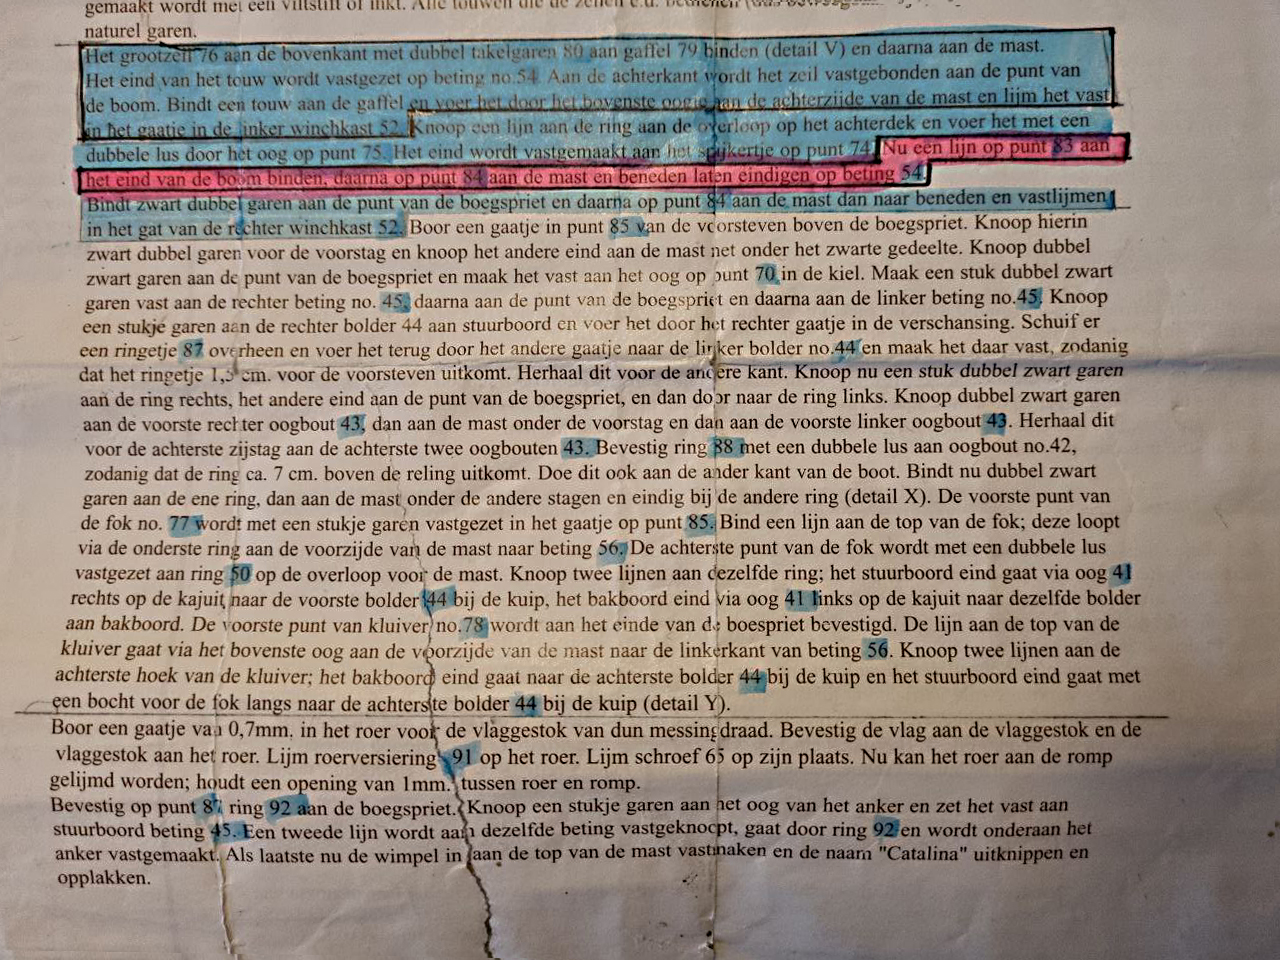 gemaakt wordt met een viltstift of inkt. Alle touwen die de zeilen e.d. bedienen
naturel garen.
Het grootzeil 76 aan de bovenkant met dubbel takelgaren 80 aan gaffel 79 binden (detail V) en daarna aan de mast.
Het eind van het touw wordt vastgezet op beting no.54. Aan de achterkant wordt het zeil vastgebonden aan de punt van
de boom. Bindt een touw aan de gaffel en voer het door het bovenste oogje aan de achterzijde van de mast en lijm het vast
in het gaatje in de linker winchkast 52. Knoop een lijn aan de ring aan de overloop op het achterdek en voer het met een
dubbele lus door het oog op punt 75. Het eind wordt vastgemaakt aan het spijkertje op punt 74. Nu een lijn op punt 83 aan
het eind van de boom binden, daarna op punt 84 aan de mast en beneden laten eindigen op beting 54.
Bindt zwart dubbel garen aan de punt van de boegspriet en daarna op punt 84 aan de mast dan naar beneden en vastlijmen
in het gat van de rechter winchkast 52. Boor een gaatje in punt 85 van de voorsteven boven de boegspriet. Knoop hierin
zwart dubbel garen voor de voorstag en knoop het andere eind aan de mast net onder het zwarte gedeelte. Knoop dubbel
zwart garen aan de punt van de boegspriet en maak het vast aan het oog op punt 70 in de kiel. Maak een stuk dubbel zwart
garen vast aan de rechter beting no. 45, daarna aan de punt van de boegspriet en daarna aan de linker beting no.45. Knoop
een stukje garen aan de rechter bolder 44 aan stuurboord en voer het door het rechter gaatje in de verschansing. Schuif er
een ringetje 87 overheen en voer het terug door het andere gaatje naar de linker bolder no.44 en maak het daar vast, zodanig
dat het ringetje 1,5 cm. voor de voorsteven uitkomt. Herhaal dit voor de andere kant. Knoop nu een stuk dubbel zwart garen
aan de ring rechts, het andere eind aan de punt van de boegspriet, en dan door naar de ring links. Knoop dubbel zwart garen
aan de voorste rechter oogbout 43, dan aan de mast onder de voorstag en dan aan de voorste linker oogbout 43. Herhaal dit
voor de achterste zijstag aan de achterste twee oogbouten 43. Bevestig ring 88 met een dubbele lus aan oogbout no.42,
zodanig dat de ring ca. 7 cm. boven de reling uitkomt. Doe dit ook aan de ander kant van de boot. Bindt nu dubbel zwart
garen aan de ene ring, dan aan de mast onder de andere stagen en eindig bij de andere ring (detail X). De voorste punt van
de fok no. 77 wordt met een stukje garen vastgezet in het gaatje op punt 85. Bind een lijn aan de top van de fok; deze loopt
via de onderste ring aan de voorzijde van de mast naar beting 56. De achterste punt van de fok wordt met een dubbele lus
vastgezet aan ring 50 op de overloop voor de mast. Knoop twee lijnen aan dezelfde ring; het stuurboord eind gaat via oog 41
rechts op de kajuit naar de voorste bolder 44 bij de kuip, het bakboord eind via oog 41 links op de kajuit naar dezelfde bolder
aan bakboord. De voorste punt van kluiver no.78 wordt aan het einde van de boespriet bevestigd. De lijn aan de top van de
kluiver gaat via het bovenste oog aan de voorzijde van de mast naar de linkerkant van beting 56. Knoop twee lijnen aan de
achterste hoek van de kluiver; het bakboord eind gaat naar de achterste bolder 44 bij de kuip en het stuurboord eind gaat met
een bocht voor de fok langs naar de achterste bolder 44 bij de kuip (detail Y).
Boor een gaatje van 0,7mm. in het roer voor de vlaggestok van dun messingdraad. Bevestig de vlag aan de vlaggestok en de
vlaggestok aan het roer. Lijm roerversiering 91 op het roer. Lijm schroef 65 op zijn plaats. Nu kan het roer aan de romp
gelijmd worden; houdt een opening van 1mm. tussen roer en romp.
Bevestig op punt 87 ring 92 aan de boegspriet. Knoop een stukje garen aan het oog van het anker en zet het vast aan
stuurboord beting 45. Een tweede lijn wordt aan dezelfde beting vastgeknoopt, gaat door ring 92 en wordt onderaan het
anker vastgemaakt. Als laatste nu de wimpel in aan de top van de mast vastmaken en de naam "Catalina" uitknippen en
opplakken.